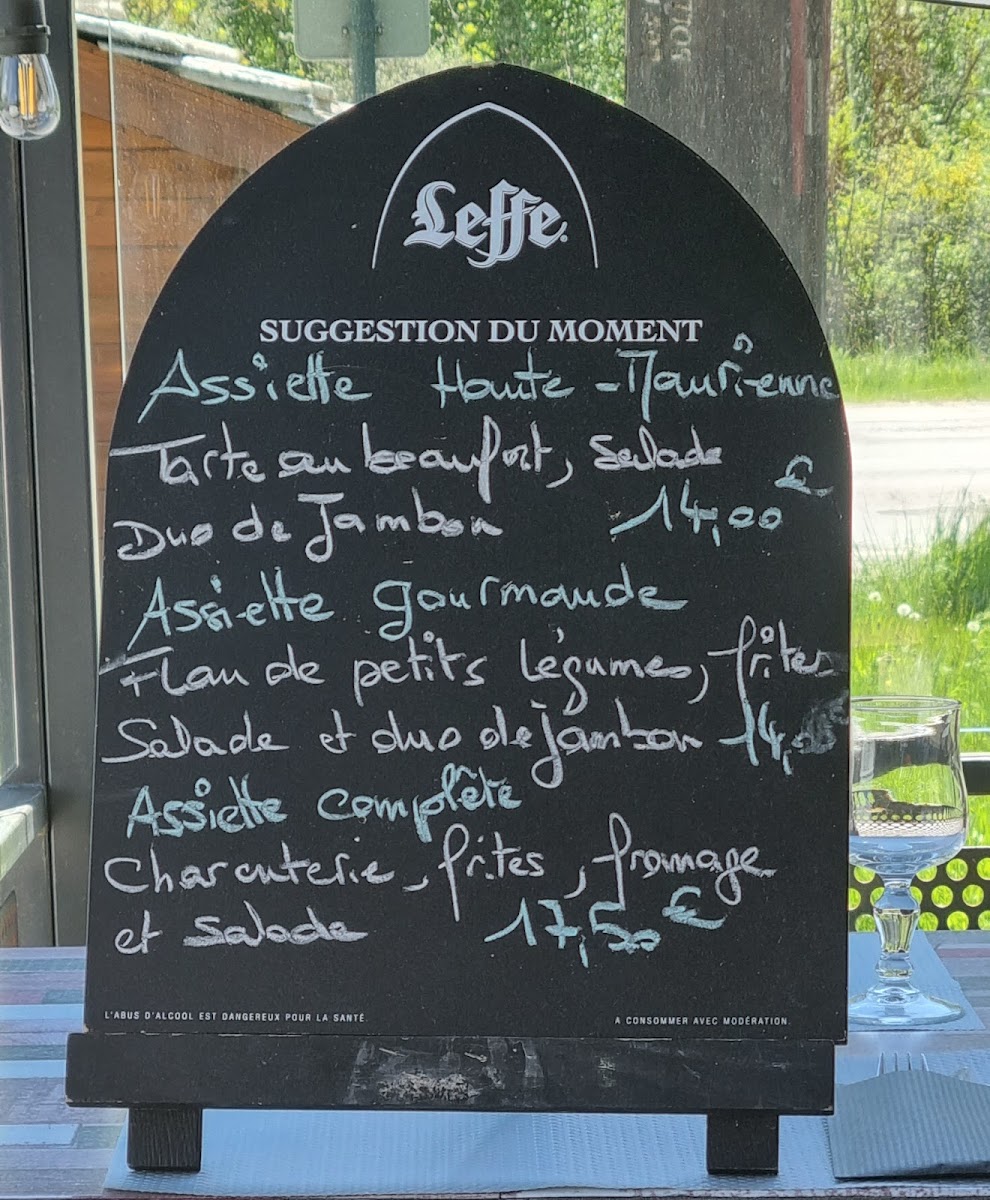 Leffe
SUGGESTION DU MOMENT
Assiette Haute-Maurienne
Tarte au beaufort, Salade
Duo de Jambon 14,00 €
Assiette gourmande
Flan de petits légumes, frites
Salade et duo de jambon 14,
Assiette complète
Charcuterie, frites, fromage
et Salade 17,50 €
L'ABUS D'ALCOOL EST DANGEREUX POUR LA SANTÉ. A CONSOMMER AVEC MODÉRATION.